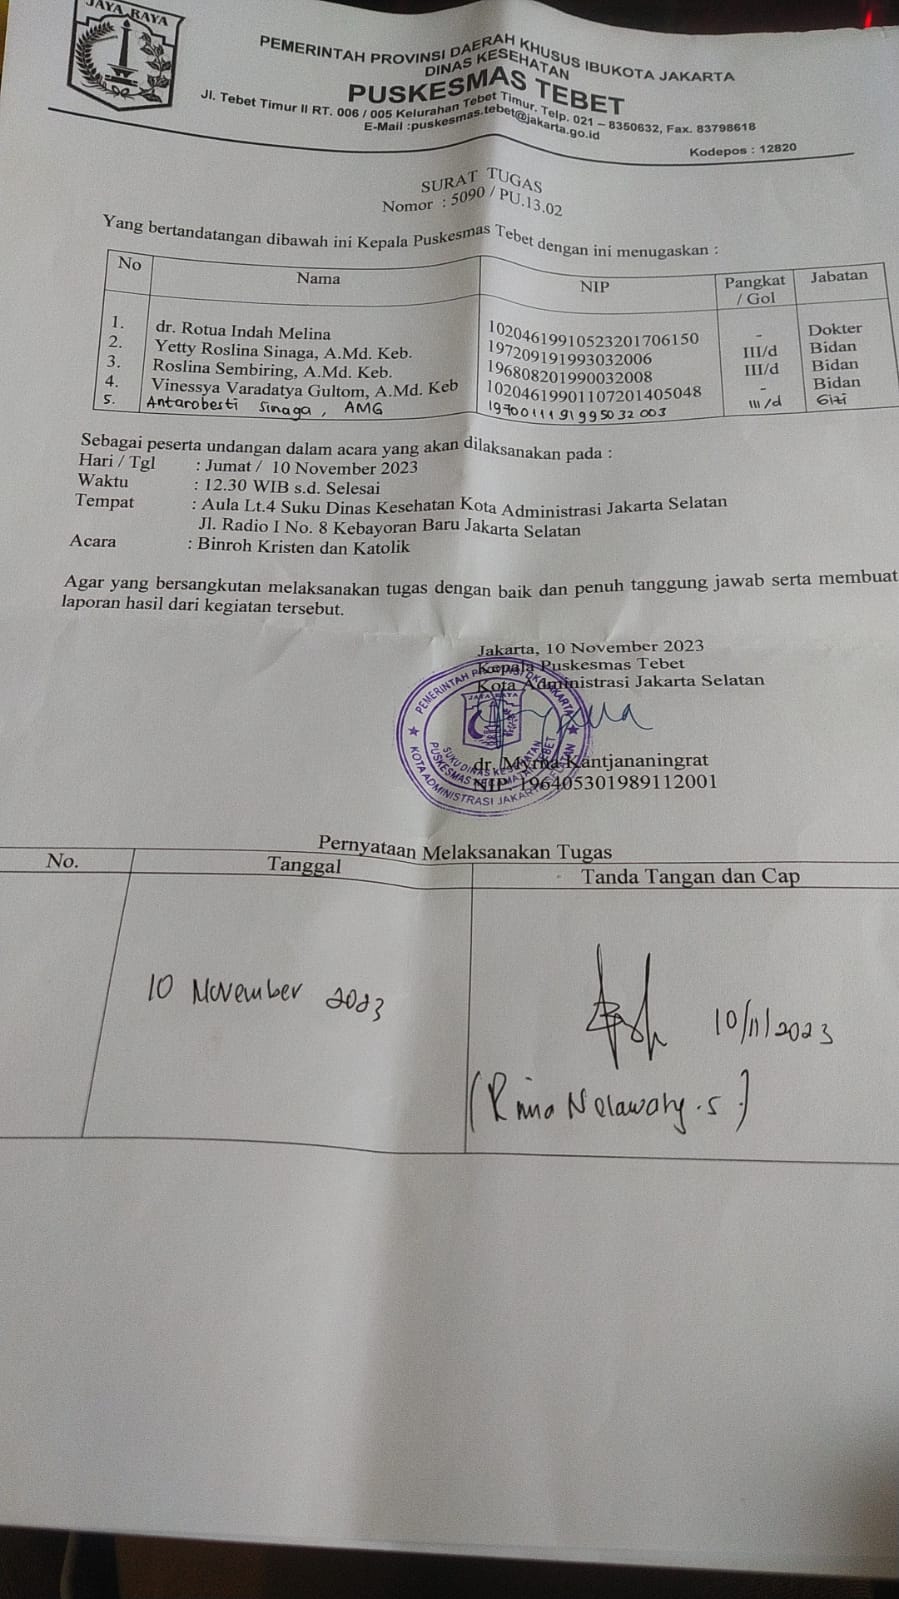 JAYA RAYA
PEMERINTAH PROVINSI DAERAH KHUSUS IBUKOTA JAKARTA
DINAS KESEHATAN
PUSKESMAS TEBET
Jl. Tebet Timur II RT. 006 / 005 Kelurahan Tebet Timur, Telp. 021 – 8350632, Fax. 83798618
E-Mail :puskesmas.tebet@jakarta.go.id
Kodepos : 12820
SURAT TUGAS
Nomor : 5090 / PU.13.02
Yang bertandatangan dibawah ini Kepala Puskesmas Tebet dengan ini menugaskan :
No Nama NIP Pangkat / Gol Jabatan
1. dr. Rotua Indah Melina 10204619910523201706150 - Dokter
2. Yetty Roslina Sinaga, A.Md. Keb. 197209191993032006 III/d Bidan
3. Roslina Sembiring, A.Md. Keb. 196808201990032008 III/d Bidan
4. Vinessya Varadatya Gultom, A.Md. Keb 10204619901107201405048 - Bidan
5. Antarobesti Sinaga, AMG III/d Gizi
Sebagai peserta undangan dalam acara yang akan dilaksanakan pada :
Hari / Tgl : Jumat / 10 November 2023
Waktu : 12.30 WIB s.d. Selesai
Tempat : Aula Lt.4 Suku Dinas Kesehatan Kota Administrasi Jakarta Selatan
Jl. Radio I No. 8 Kebayoran Baru Jakarta Selatan
Acara : Binroh Kristen dan Katolik
Agar yang bersangkutan melaksanakan tugas dengan baik dan penuh tanggung jawab serta membuat
laporan hasil dari kegiatan tersebut.
Jakarta, 10 November 2023
Kepala Puskesmas Tebet
Kota Administrasi Jakarta Selatan
dr. Myrna Kantjananingrat
NIP. 196405301989112001
PEMERINTAH PROVINSI DKI JAKARTA
JAYA RAYA
SUKU DINAS KESEHATAN
PUSKESMAS KECAMATAN TEBET
KOTA ADMINISTRASI JAKARTA SELATAN
Pernyataan Melaksanakan Tugas
No. Tanggal Tanda Tangan dan Cap
10 November 2023
10/11/2023
(Rina Nelawaty.S.)